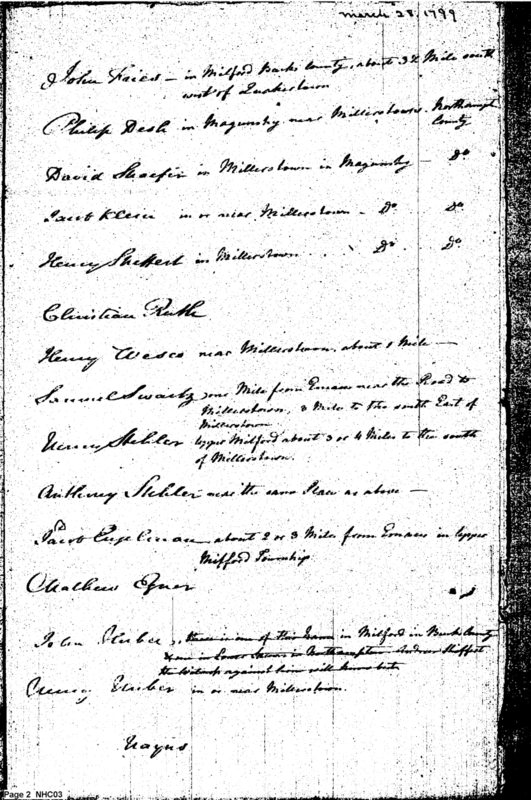 March 28, 1799
John Fries - in Milford Bucks County, about 3½ Mile south
west of Quakerstown
Philip Desh in Magunshy near Millerstown, Northampt
County
David Shaefer in Millerstown in Magunshy - Do
Jacob Klein in or near Millerstown - Do Do
Henry Shiffert in Millerstown . . Do Do
Christian Ruth
Henry Wesco near Millerstown, about 1 Mile -
Samuel Swartz one Mile from Emaus near the Road to
Millerstown, 3 Miles to the south East of
Millerstown
Henry Stehler upper Milford about 3 or 4 Miles to the south
of Millerstown.
Anthony Stehler near the same Place as above -
Jacob about 2 or 3 Miles from Emaus in upper
Milford Township.
Mathew Egner
John Huber, there is one of this Name in Milford in Bucks County
& one in Lower in Northampton Andrew Shiffert
the Witness against him will know both
Henry Huber in or near Millerstown.
Page 2 NHC03